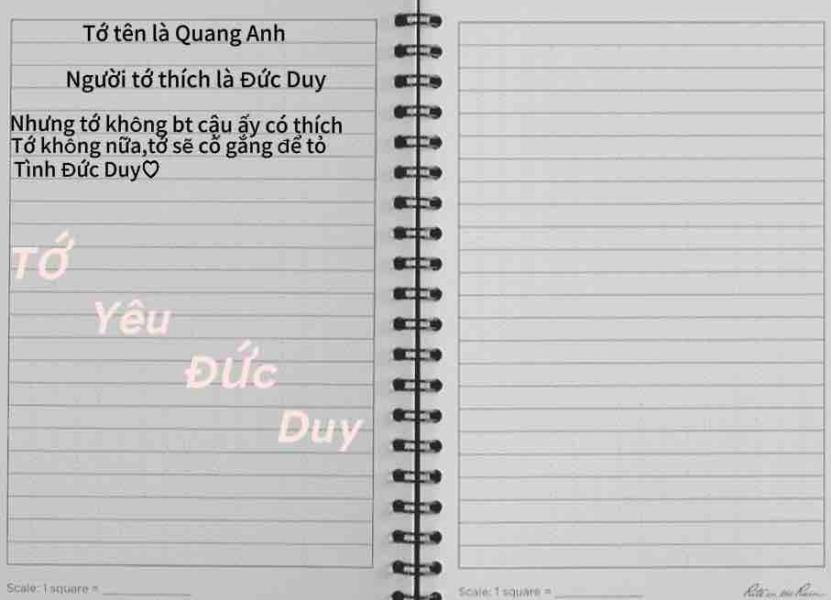 Tớ tên là Quang Anh
Người tớ thích là Đức Duy
Nhưng tớ không bt cậu ấy có thích
Tớ không nữa,tớ sẽ cố gắng để tỏ
Tình Đức Duy♡
Tớ
Yêu
Đức
Duy
Scale: 1 square = 
Scale: 1 square = 
Rite in the Rain